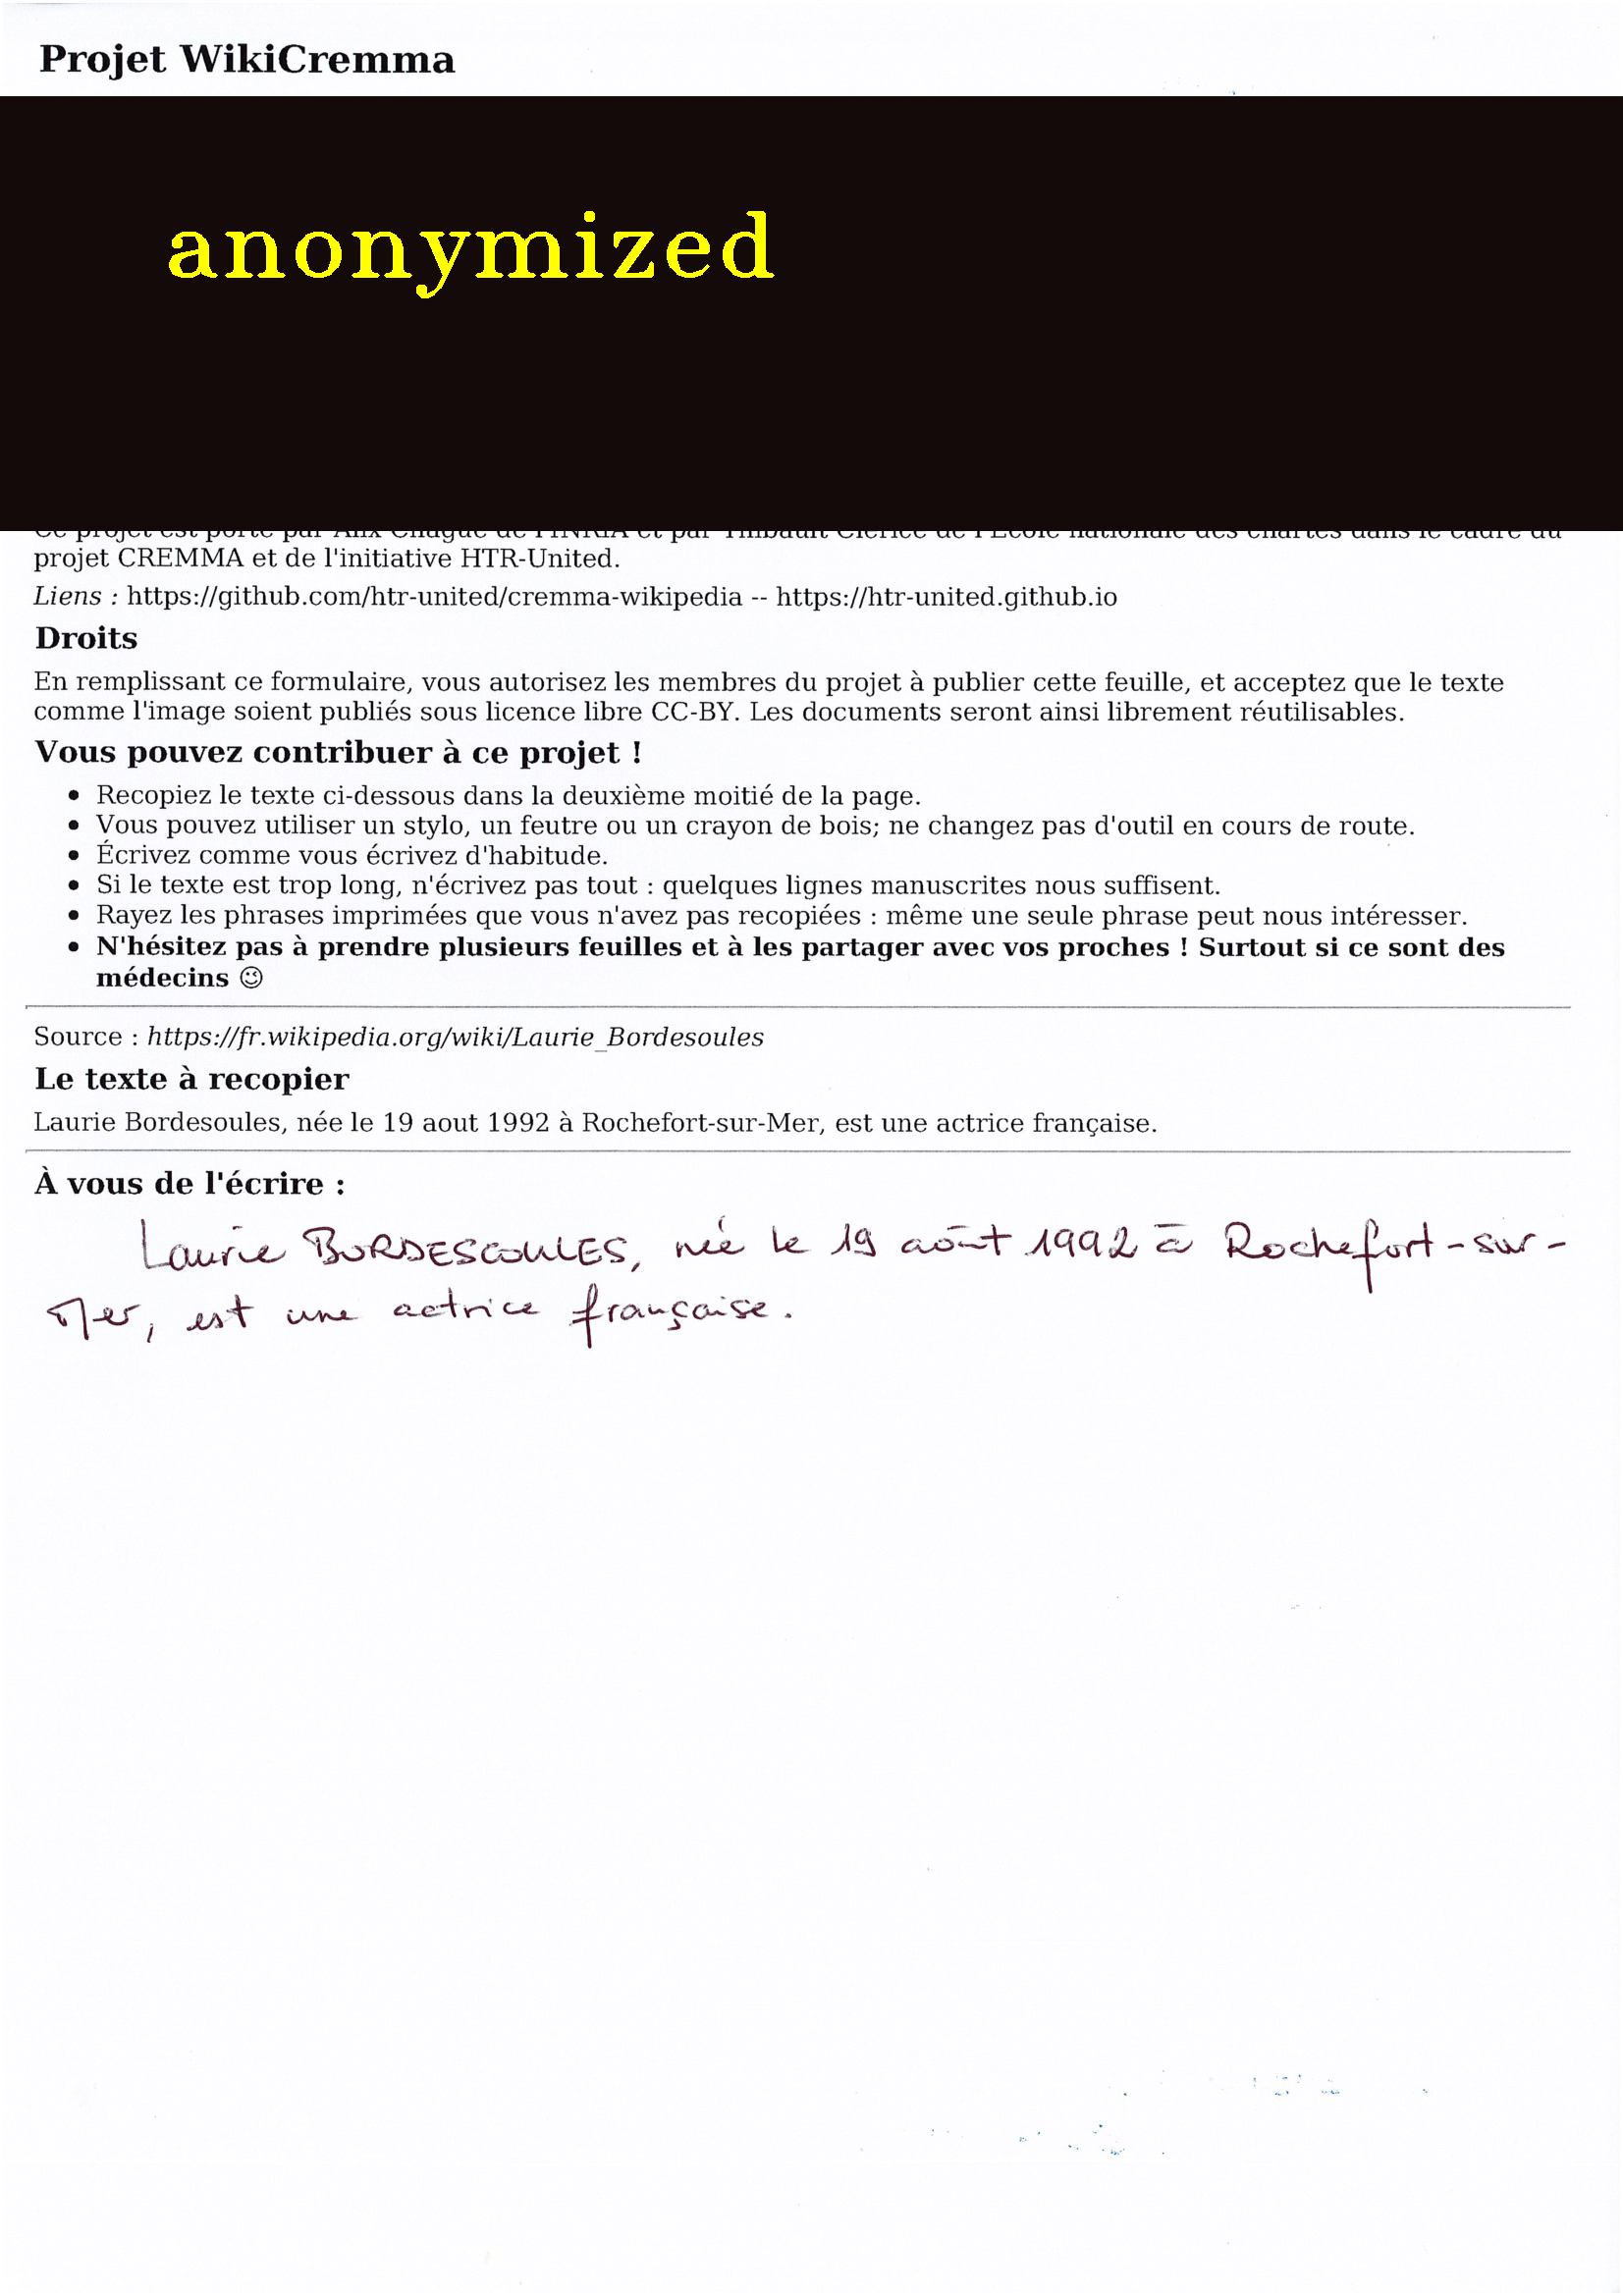 Projet WikiCremma
anonymized
Ce projet est porté par Alix Chagué de l'INRIA et par Thibault Clérice de l'École nationale des chartes dans le cadre du
projet CREMMA et de l'initiative HTR-United.
Liens : https://github.com/htr-united/cremma-wikipedia -- https://htr-united.github.io
Droits
En remplissant ce formulaire, vous autorisez les membres du projet à publier cette feuille, et acceptez que le texte
comme l'image soient publiés sous licence libre CC-BY. Les documents seront ainsi librement réutilisables.
Vous pouvez contribuer à ce projet !
• Recopiez le texte ci-dessous dans la deuxième moitié de la page.
• Vous pouvez utiliser un stylo, un feutre ou un crayon de bois; ne changez pas d'outil en cours de route.
• Écrivez comme vous écrivez d'habitude.
• Si le texte est trop long, n'écrivez pas tout : quelques lignes manuscrites nous suffisent.
• Rayez les phrases imprimées que vous n'avez pas recopiées : même une seule phrase peut nous intéresser.
• N'hésitez pas à prendre plusieurs feuilles et à les partager avec vos proches ! Surtout si ce sont des
médecins 😉
Source : https://fr.wikipedia.org/wiki/Laurie_Bordesoules
Le texte à recopier
Laurie Bordesoules, née le 19 aout 1992 à Rochefort-sur-Mer, est une actrice française.
À vous de l'écrire :
Laurie BORDESOULES, née le 19 août 1992 à Rochefort-sur-
Mer, est une actrice française.